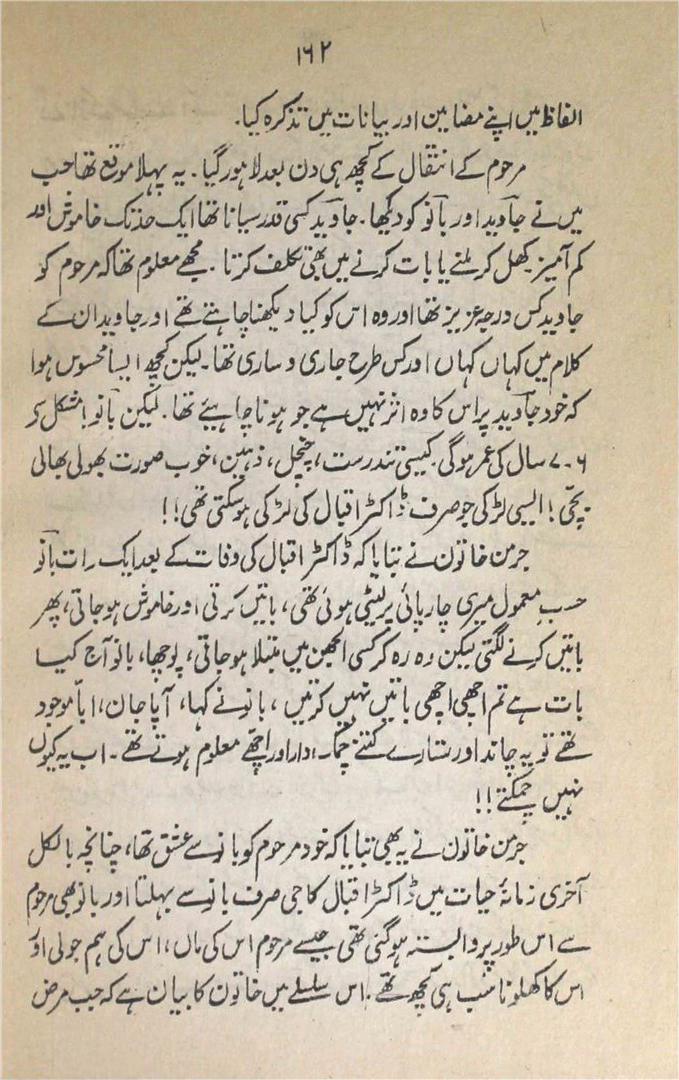 ۱۶۲
الفاظ میں اپنے مضامین اور بیانات میں تذکرہ کیا.
مرحوم کے انتقال کے کچھ ہی دن بعد لاہور گیا. یہ پہلا موقع تھا جب
میں نے جاوید اور بانو کو دیکھا. جاوید کسی قدر سیانا تھا ایک حد تک خاموش اور
کم آمیز. کھل کر ملنے یا بات کرنے میں بھی تکلف کرتا. مجھے معلوم تھا کہ مرحوم کو
جاوید کس درجہ عزیز تھا اور وہ اس کو کیا دیکھنا چاہتے تھے اور جاوید ان کے
کلام میں کہاں کہاں اور کس طرح جاری و ساری تھا. لیکن کچھ ایسا محسوس ہوا
کہ خود جاوید پر اس کا وہ اثر نہیں ہے جو ہونا چاہیئے تھا. لیکن بانو! مشکل سے
۶-۷ سال کی عمر ہوگی کیسی تندرست، چنچل، ذہین، خوب صورت بھولی بھالی
بچی! ایسی لڑکی جو صرف ڈاکٹر اقبال کی لڑکی ہوسکتی تھی!!
جرمن خاتون نے بتایا کہ ڈاکٹر اقبال کی وفات کے بعد ایک رات بانو
حسب معمول میری چارپائی پر لیٹی ہوئی تھی، باتیں کرتی اور خاموش ہو جاتی، پھر
باتیں کرنے لگتی لیکن رہ رہ کر کسی الجھن میں مبتلا ہو جاتی، پوچھا، بانو آج کیا
بات ہے تم اچھی اچھی باتیں نہیں کرتیں، بانو نے کہا، آپا جان، ابا موجود
تھے تو یہ چاند اور ستارے کتنے چمک دار اور اچھے معلوم ہوتے تھے. اب یہ کیوں
نہیں چمکتے!!
جرمن خاتون نے یہ بھی بتایا کہ خود مرحوم کو بانو سے عشق تھا، چنانچہ بالکل
آخری زمانۂ حیات میں ڈاکٹر اقبال کا جی صرف بانو سے بہلتا اور بانو بھی مرحوم
سے اس طور پر وابستہ ہوگئی تھی جیسے مرحوم اس کی ماں، اس کی ہم جولی اور
اس کا کھلونا سب ہی کچھ تھے. اس سلسلے میں خاتون کا بیان ہے کہ جب مرض